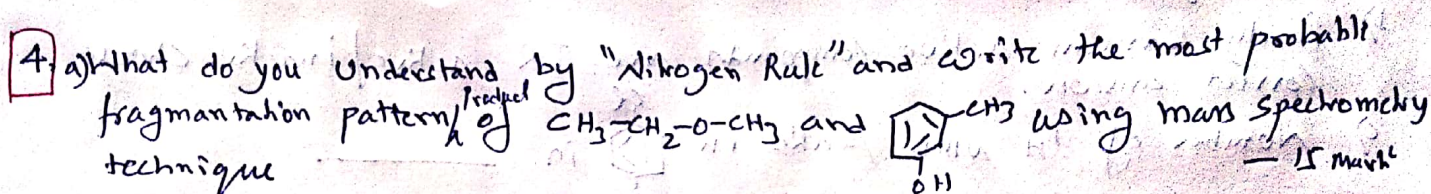 4. a) What do you understand by "Nitrogen Rule" and write the most probable
fragmantation pattern/Product of CH3-CH2-O-CH3 and CH3 using mass spectrometry
OH
technique — 15 Marks